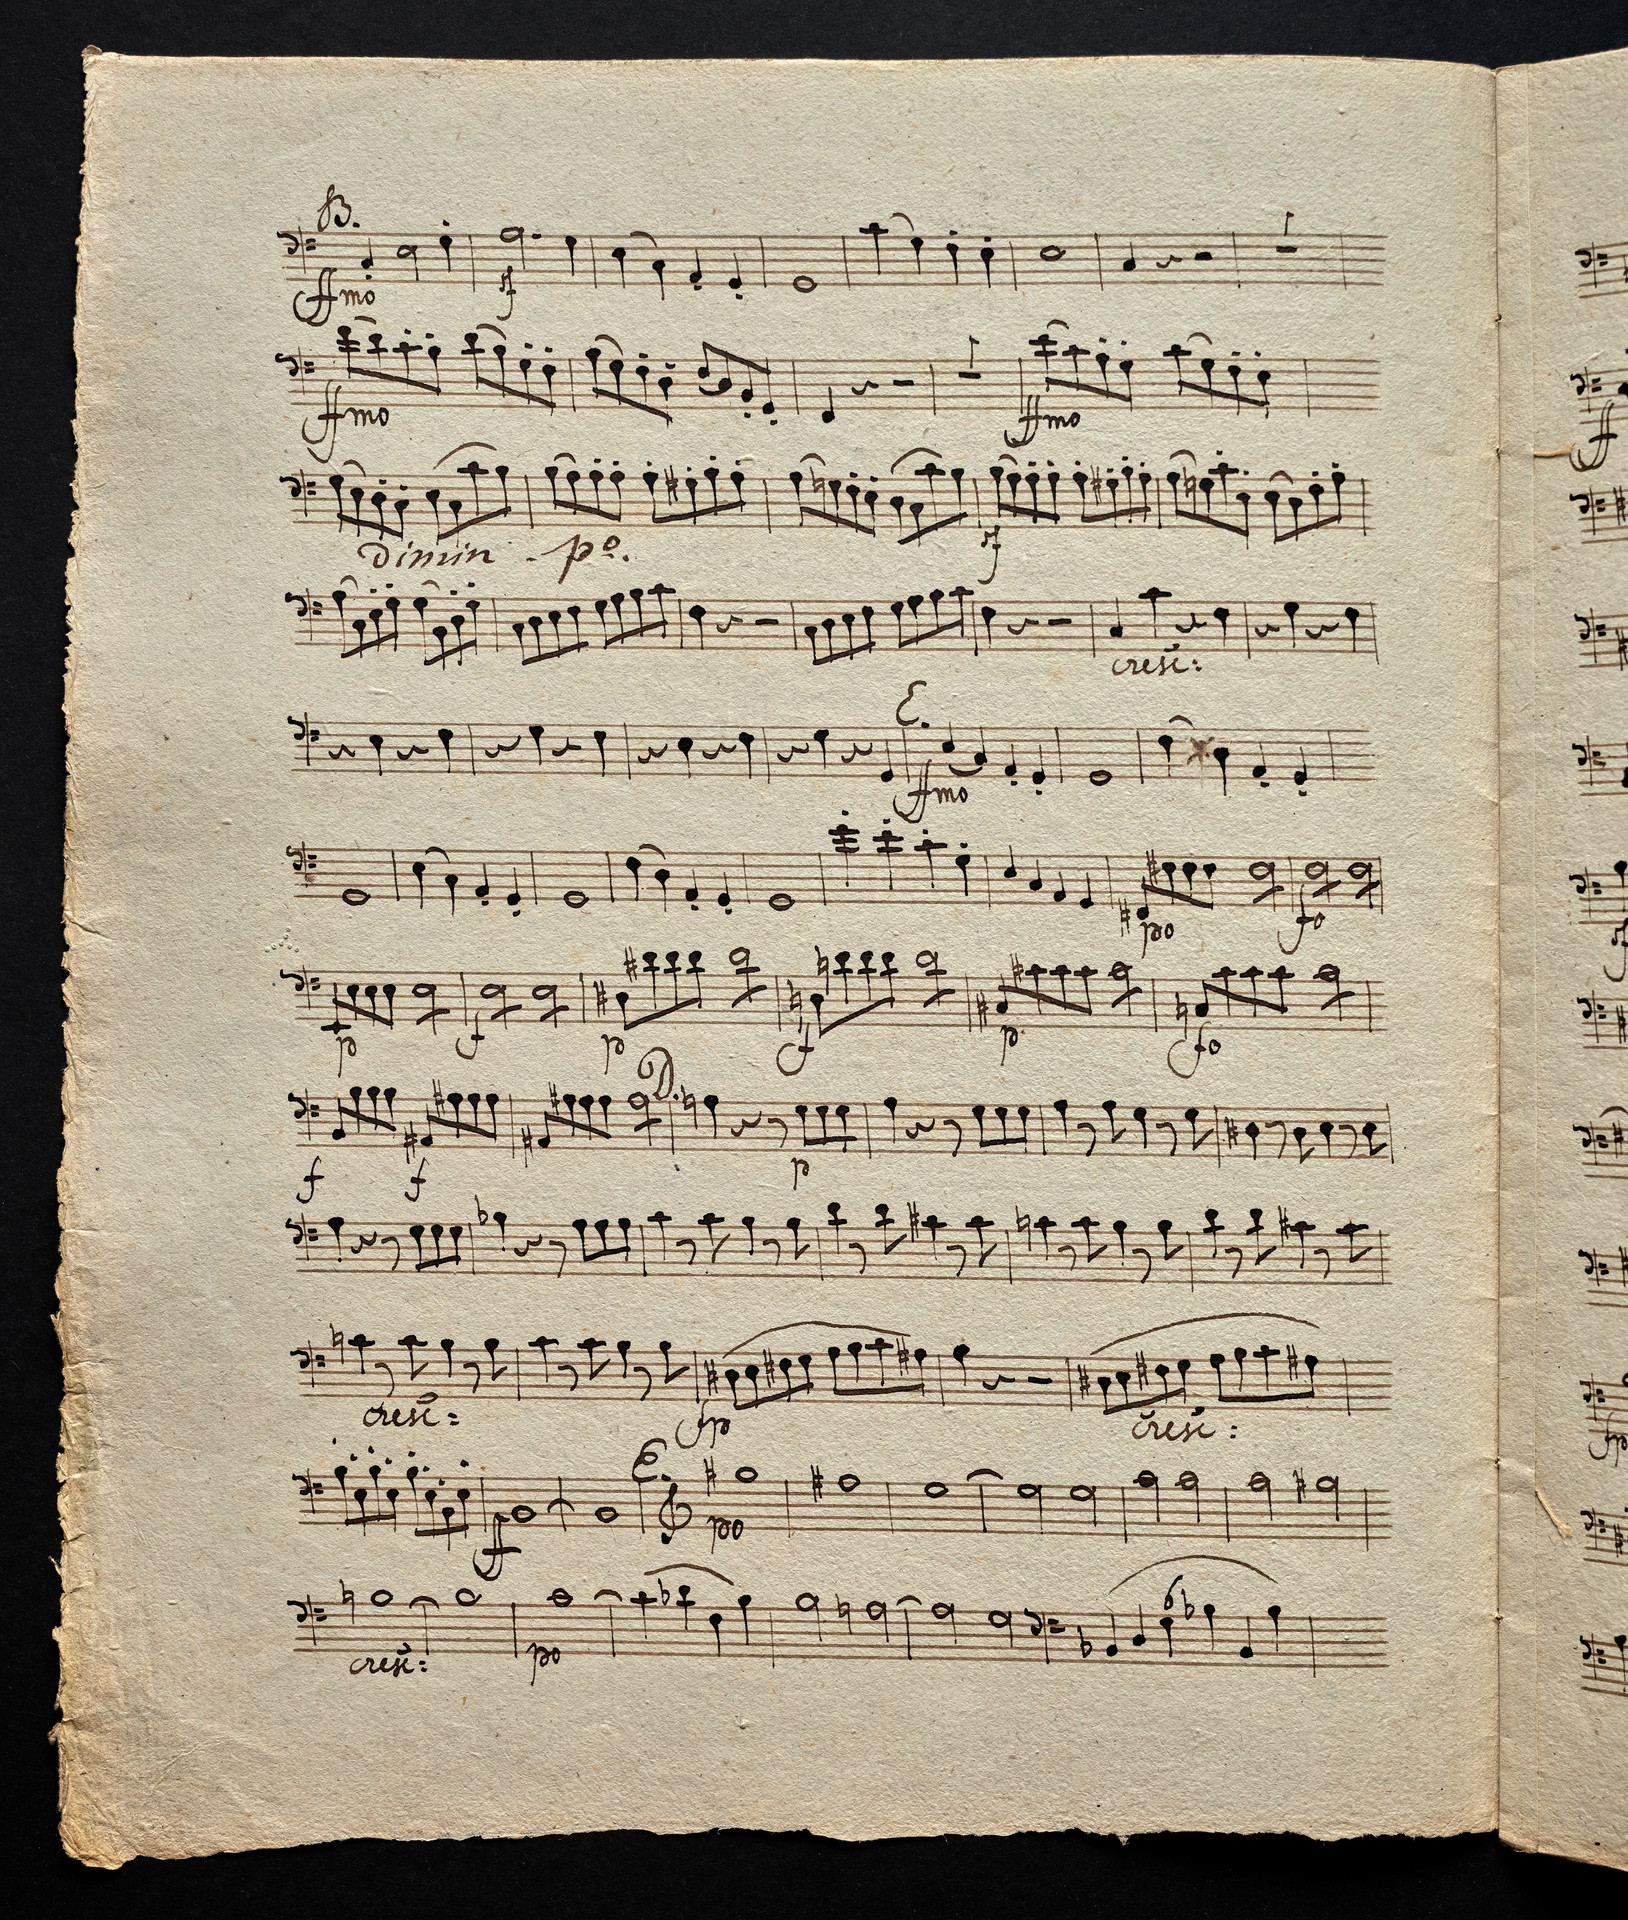 B.
ffmo sf
ffmo ffmo
Dimin. po.
sf
cresc:
C.
ffmo
po fo
p f p f p fo
D.
f f p
cresc: fp cresc:
E.
ff po
6
cresc: po